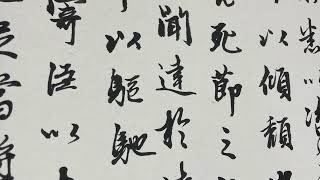 悉以咨
以傾頹
死節之
聞達於
以驅馳
寄臣以
足當